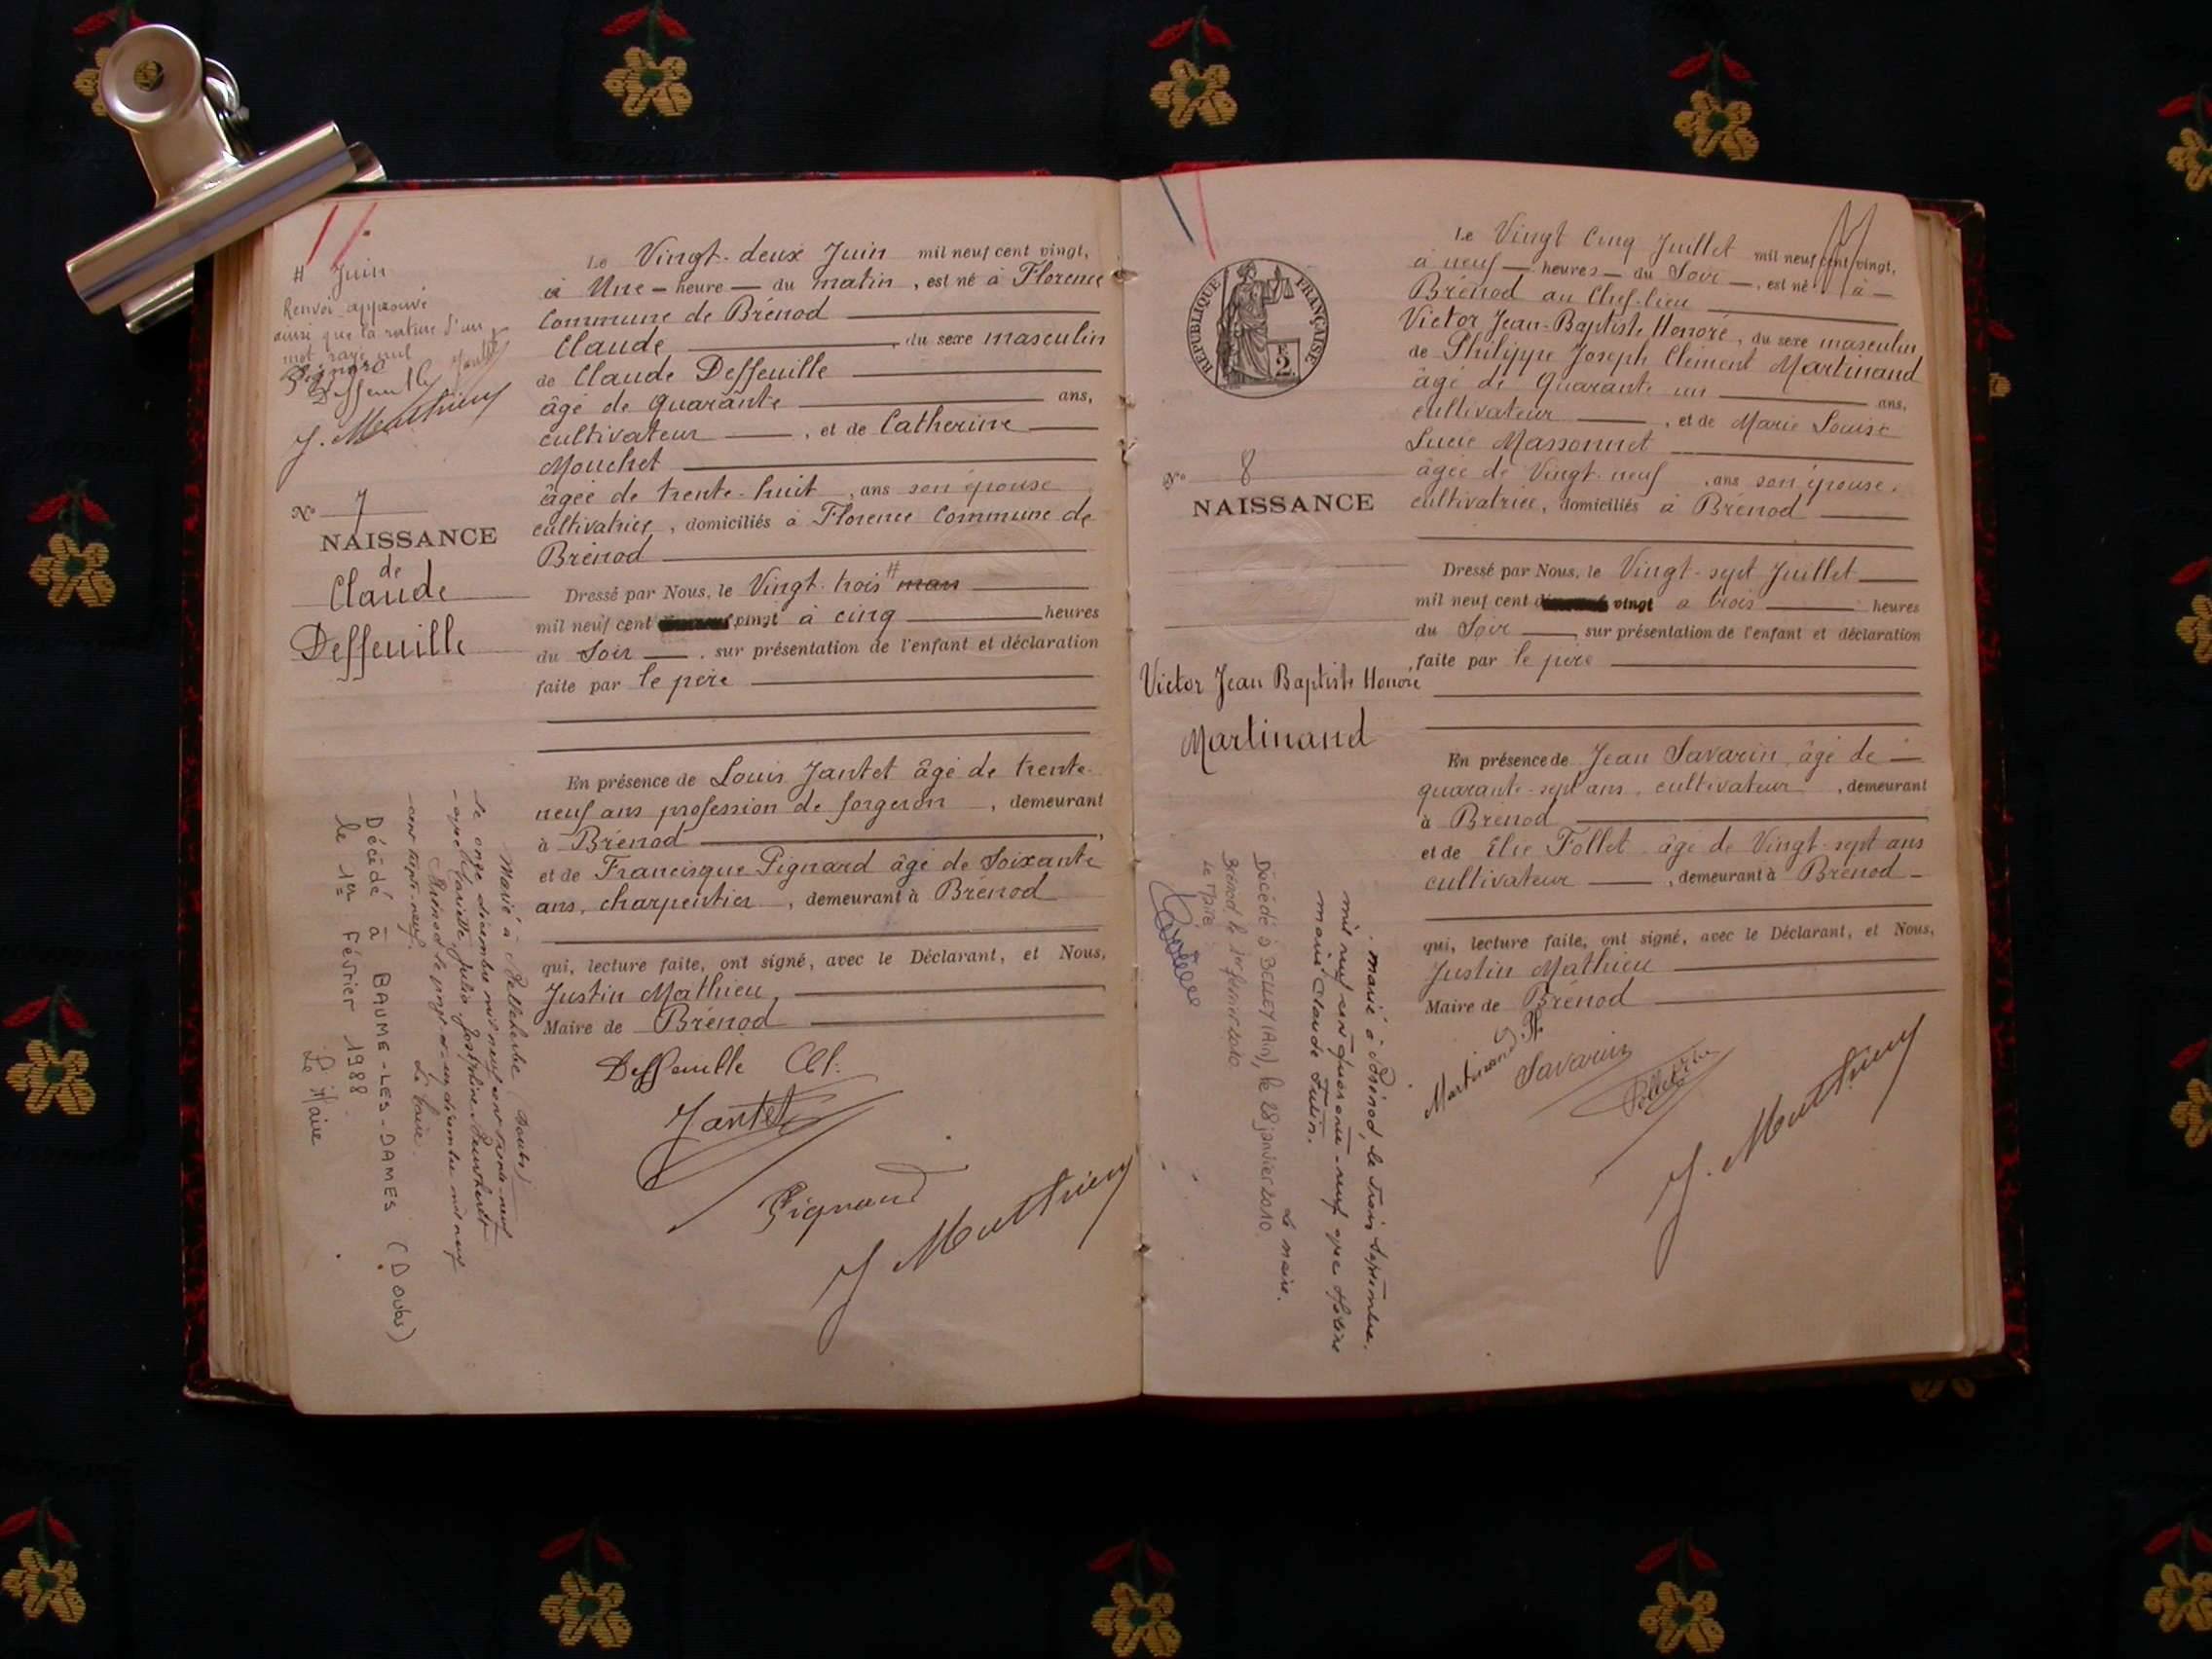 # Juin
Renvoi approuvé
ainsi que la rature d'un
mot rayé nul
Pignard
Deffeuille Jantet
J. Mathieu
N° 7
NAISSANCE
de
Claude
Deffeuille
Le Vingt-deux Juin mil neuf cent vingt,
à Une heure du matin, est né à Florence
Commune de Brénod
Claude, du sexe masculin
de Claude Deffeuille
âgé de quarante ans,
cultivateur, et de Catherine
Mouchet
âgée de trente-huit, ans son épouse
cultivatrice, domiciliés à Florence Commune de
Brénod
Dressé par Nous, le Vingt-trois # mars
mil neuf cent vingt à cinq heures
du Soir, sur présentation de l'enfant et déclaration
faite par le père
En présence de Louis Jantet âgé de trente-
neuf ans profession de forgeron, demeurant
à Brénod,
et de Francisque Pignard âgé de Soixante
ans, charpentier, demeurant à Brénod
qui, lecture faite, ont signé, avec le Déclarant, et Nous,
Justin Mathieu,
Maire de Brénod
Deffeuille Cl.
Jantet
Pignard
J Mathieu
Marié à (Doubs)
le onze décembre mil neuf cent trente-neuf
avec Julia Joséphine
Brénod le vingt-et-un décembre mil neuf
cent trente-neuf.
Le Maire.
Décédé à BAUME-LES-DAMES (Doubs)
le 1er Février 1988
Le Maire
RÉPUBLIQUE FRANÇAISE
2
N° 8
NAISSANCE
Victor Jean Baptiste Honoré
Martinand
Le Vingt Cinq Juillet mil neuf cent vingt,
à neuf heures du Soir, est né à
Brénod au Chef-lieu
Victor Jean-Baptiste Honoré, du sexe masculin
de Philippe Joseph Clément Martinand
âgé de quarante un ans,
cultivateur, et de Marie Louise
Lucie Massonnet
âgée de Vingt-neuf, ans son épouse,
cultivatrice, domiciliés à Brénod
Dressé par Nous, le Vingt-sept Juillet
mil neuf cent vingt à trois heures
du Soir, sur présentation de l'enfant et déclaration
faite par le père
En présence de Jean Savarin, âgé de
quarante-sept ans, cultivateur, demeurant
à Brénod
et de Elie Follet âgé de Vingt-sept ans
cultivateur, demeurant à Brénod
qui, lecture faite, ont signé, avec le Déclarant, et Nous,
Justin Mathieu
Maire de Brénod
Martinand
Savarin
J. Mathieu
Marié à Brénod, le trois septembre
mil neuf cent quarante-neuf avec Hélène
Marie Claude Julin.
Le maire.
Décédé à BELLEY (Ain), le 28 janvier 2010
Brénod, le 1er février 2010
Le Maire